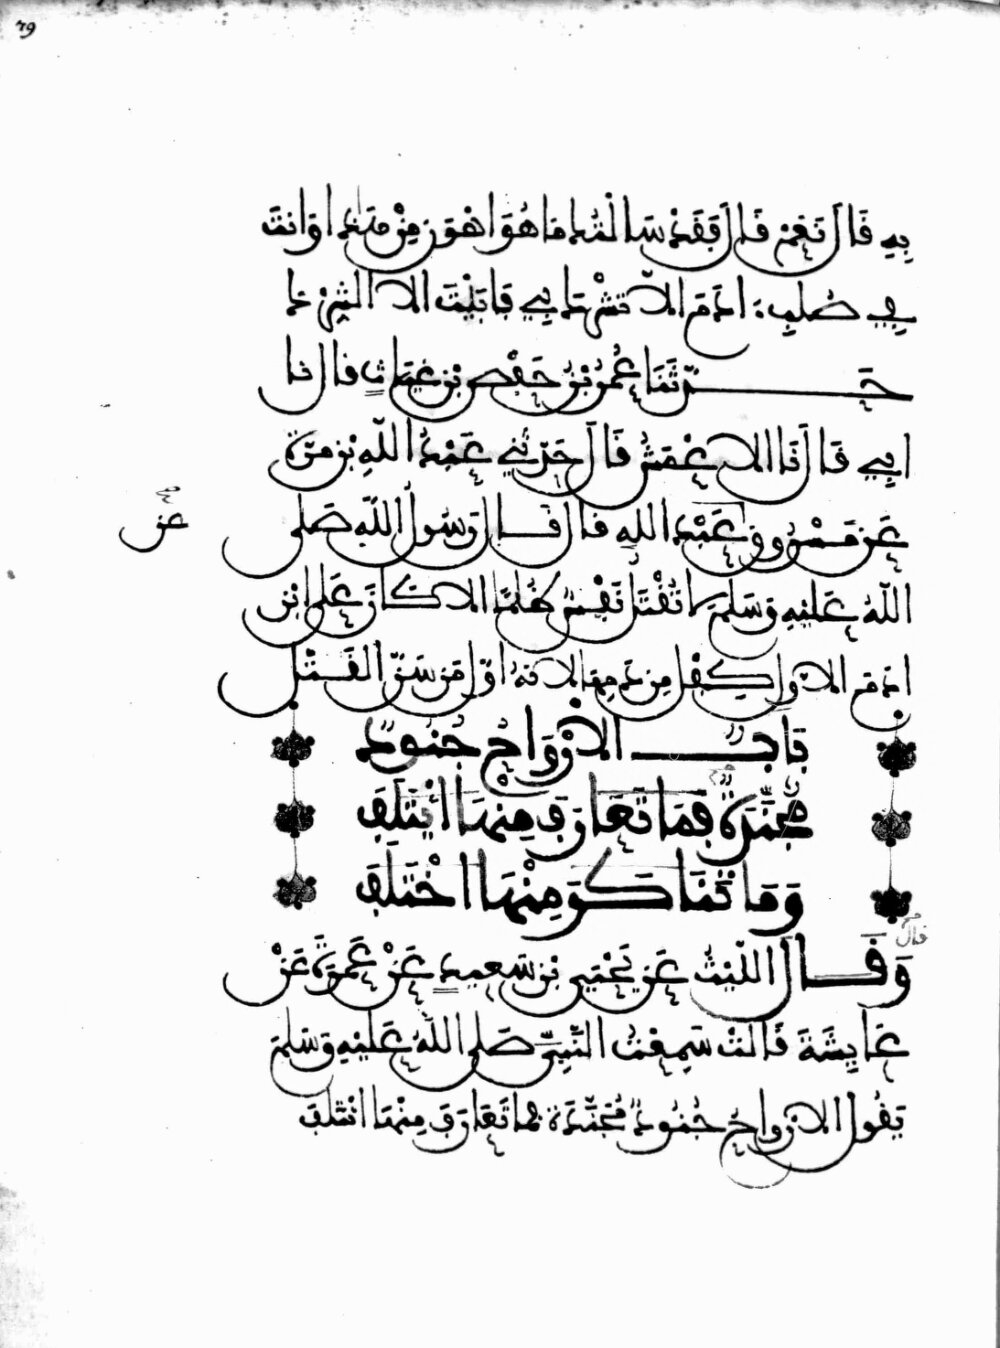 79
بِهِ قَالَ نَعَمْ قَالَ فَقَدْ سَالْتُكَ مَا هُوَ اهْوَن مِنْ هَذَا وَانتَ
فِي صُلبِ ادَمَ الا تشْرِكَ بِي فَابَيْتَ الا الشِّرْكَ
حَدَّثَنَا عُمَرُ بْنُ حَفْصِ بْنِ غِيَاثٍ قال نا
ابِي قَالَ نَا الاعْمَشُ قَالَ حَدّثَنِي عَبْدُ اللّهِ بْن مرّةَ
عن
عَن مَسْرُوو عَبْدِ اللهِ قال قَال رَسُولُ اللّهِ صَلى
اللّهُ عَلَيْهِ وَسَلمَ لا تُقْتَلُ نَفْسٌ ظُلْمًا الا كَانَ عَلى ابْنِ
ادَمَ الاوّلِ كِفْل مِن دَمِهَا لانهُ اوّلُ مَن سَنّ الْقَتْل
بَابٌ الارْوَاحُ جُنُودٌ
مُجَنّدَةٌ فَمَا تَعَارَفَ مِنْهَا ائْتَلَفَ
وَمَا تَنَاكَرَ مِنْهَا اخْتَلَفَ
قال
وَقَالَ اللّيْثُ عَن يَحْيَى بْنِ سَعِيدٍ عَنْ عَمْرَةَ عَنْ
عَايِشَةَ قَالَتْ سَمِعْتُ النّبِيّ صَلى اللّهُ عَلَيْهِ وَسَلمَ
يَقُولُ الارْوَاحُ جُنُودٌ مُجَنّدَةٌ فما تَعَارَفَ مِنْهَا ائتَلَفَ